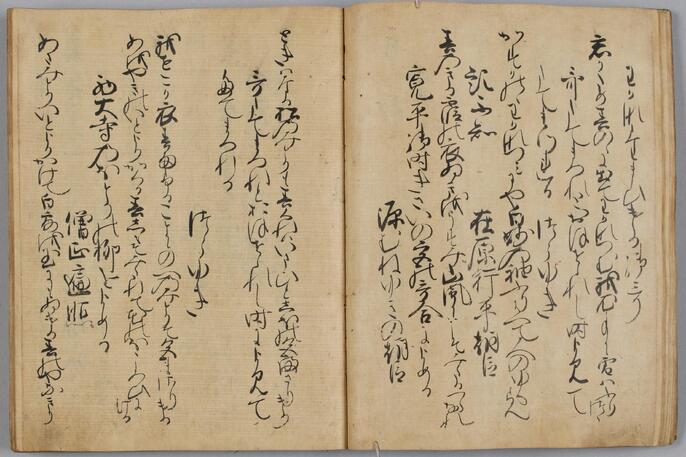 わかなたまひける御うた
君かため春の野にいてゝわかなつむ我衣手に雪はふりつゝ
哥たてまつれとおほせられし時によみて
たてまつれる　つらゆき
かすかのゝわかなつみにや白妙の袖ふりはへて人のゆくらん
題不知　在原行平朝臣
春のきる霞の衣ぬきをうすみ山風にこそみたるへらなれ
寛平御時きさいの宮の哥合によめる
源むねゆきの朝臣
ときはなる松のみとりも春くれはいまひとしほの色まさりけり
哥たてまつれとおほせられし時によみて
たてまつれる
つらゆき
我せこか衣春雨ふることにのへのみとりそ色まさりける
あをやきのいとよりかくる春しもそみたれて花のほころひにける
西大寺のほとりの柳をよめる
僧正遍昭
あさみとりいとよりかけて白露を玉にもぬける春の